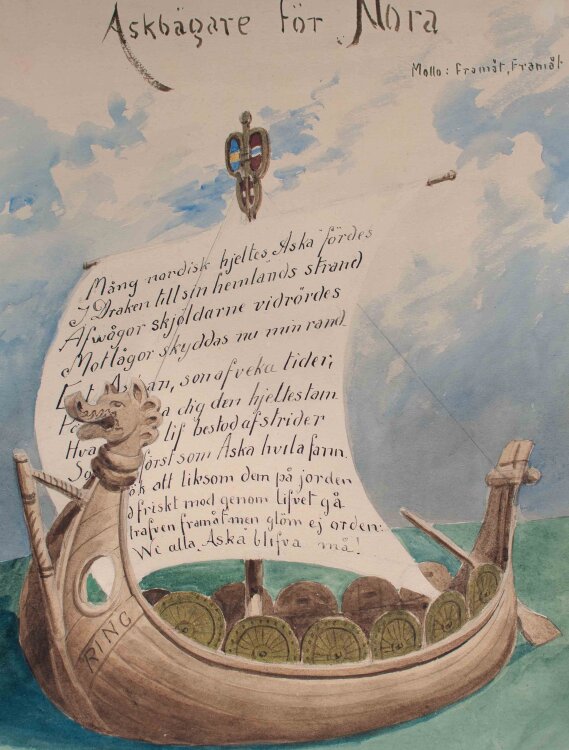 Askbägare för Nora
Motto: Framåt, Framåt.
Mång nordisk hjeltes Aska fördes
I Draken till sin hemlands strand
Af wågor skjøldarne vidrördes
Mot lågor skyddas nu min rand
son af veka tider;
dig den hjeltestam
lif bestod af strider
först som Aska hvila fann.
att liksom dem på jorden
friskt mod genom lifvet gå
framåt men glöm ej orden:
Wi alla "Aska" blifva må!
RING